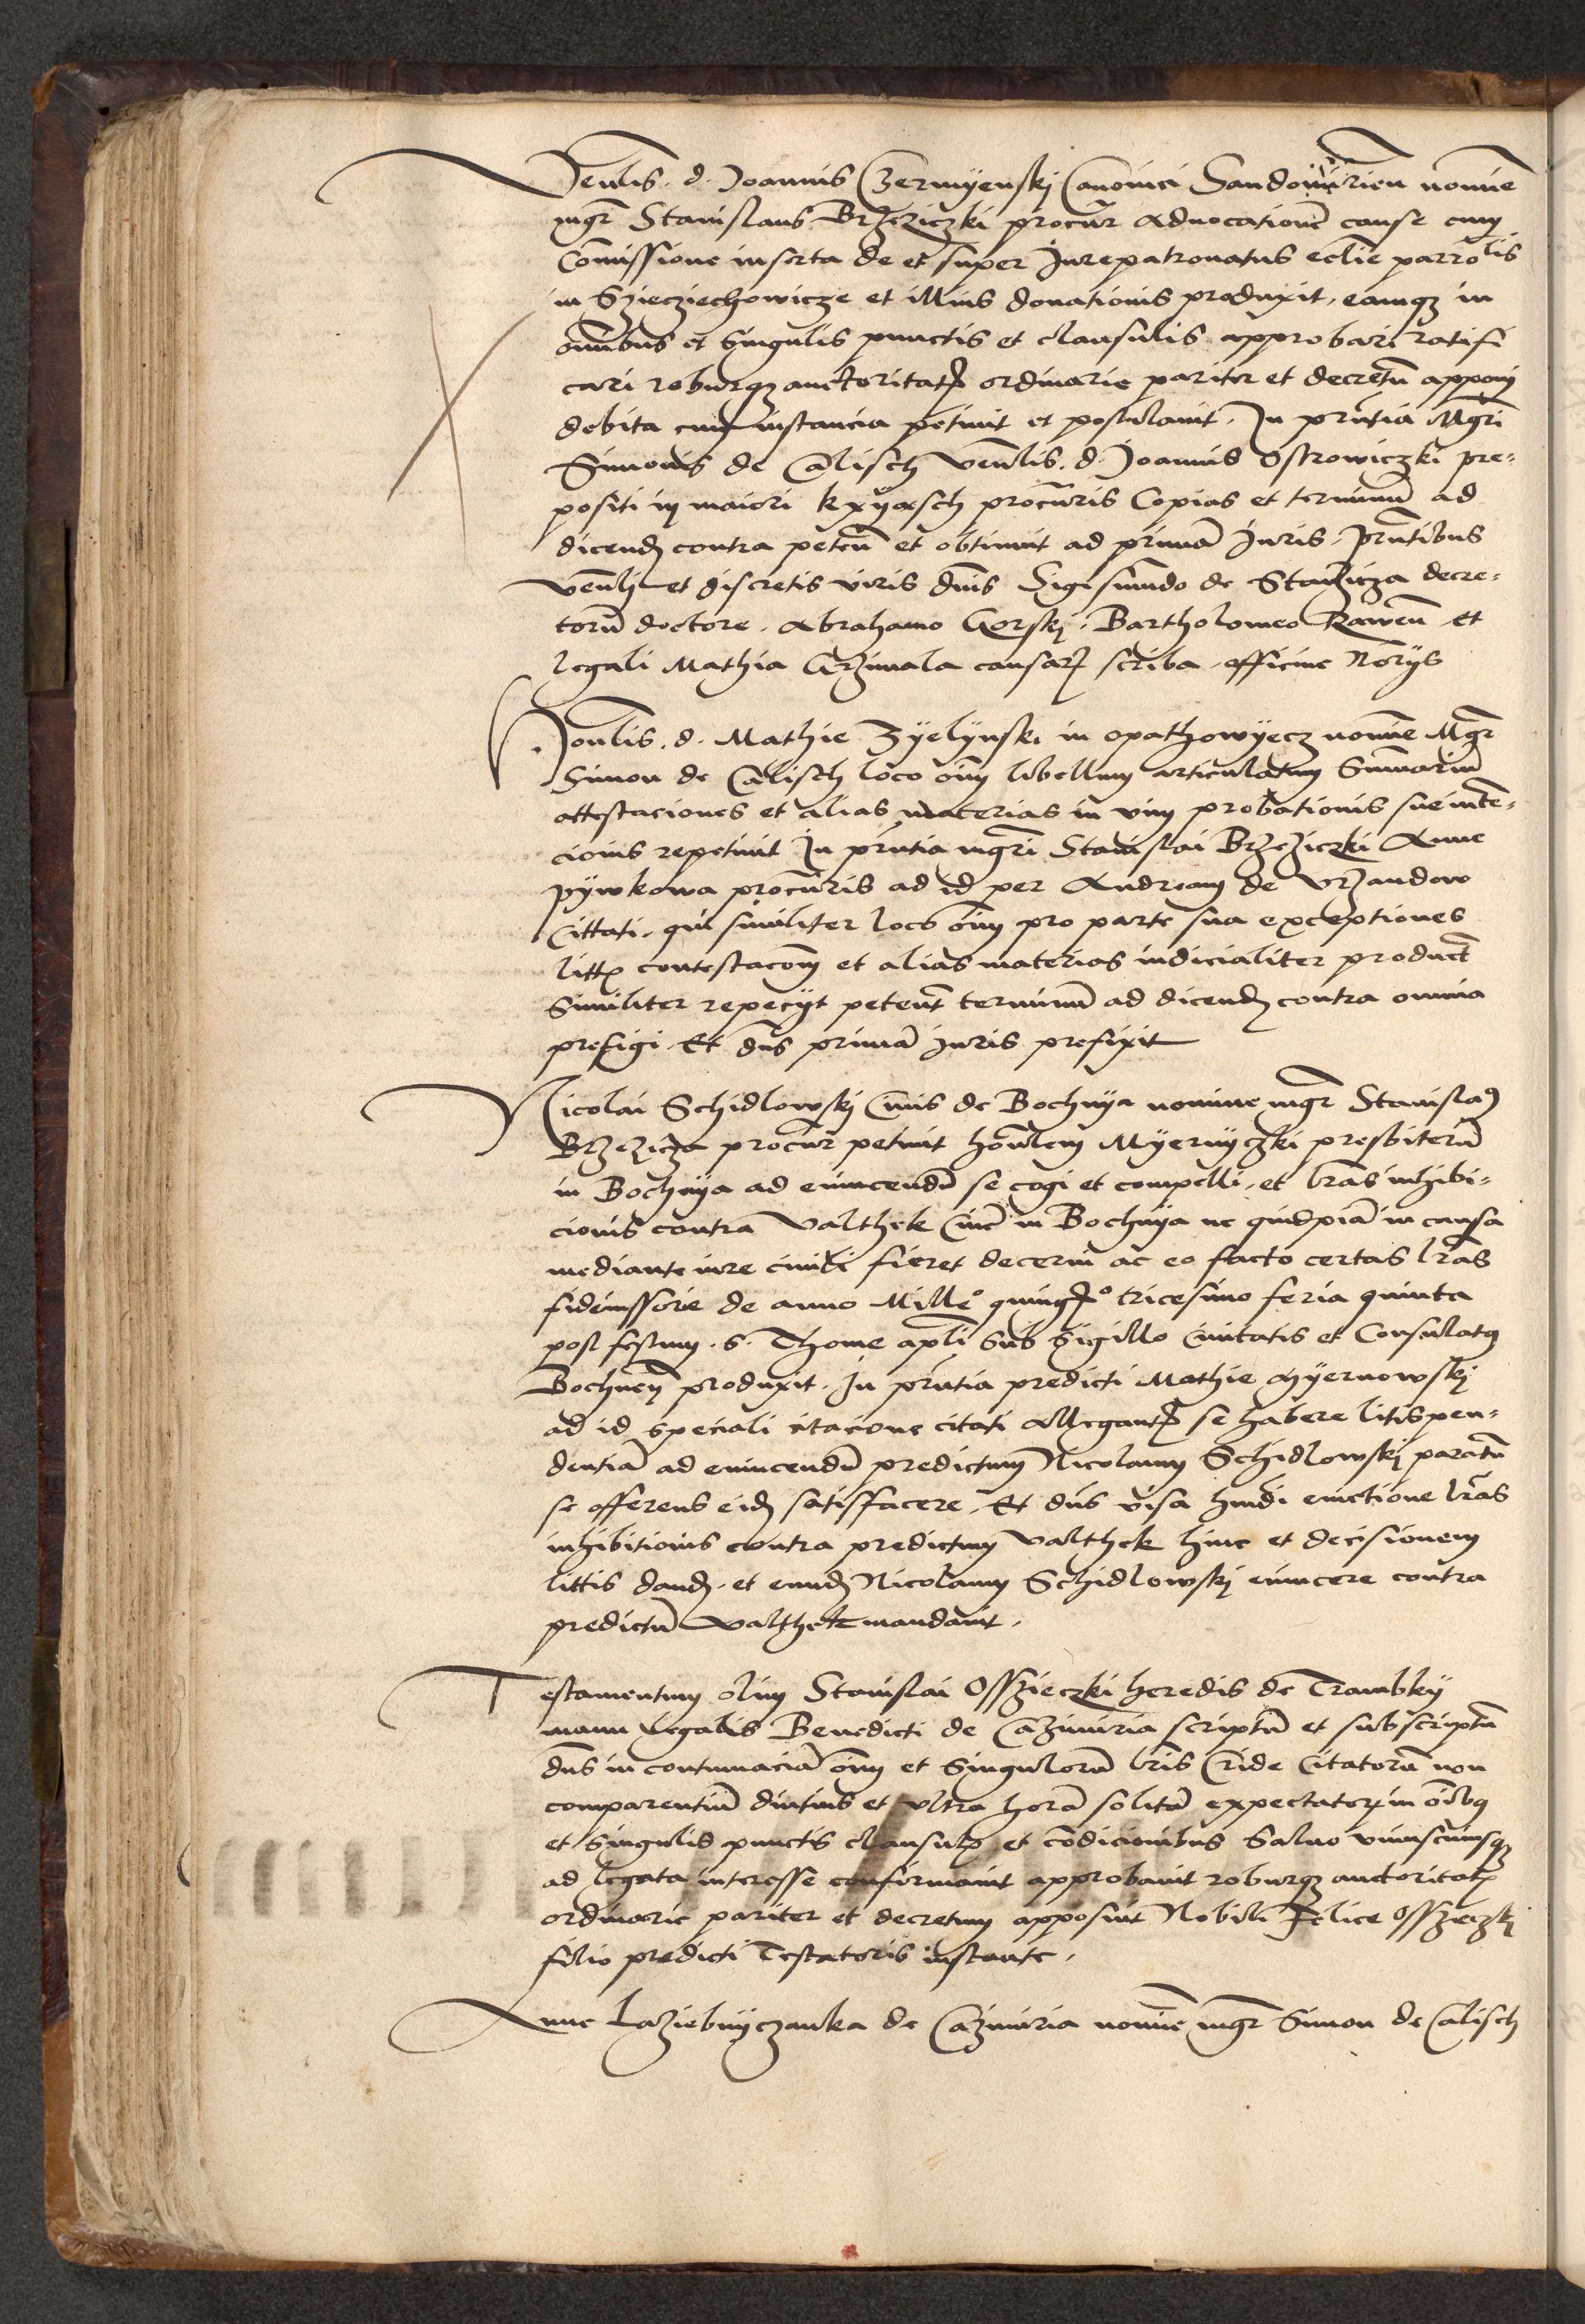 Venlis. d. Joannis Czermyenskj Canonici Sandomirien nomine
mgr Stanislaus Brzeziczki procur aduocationem cause cum
Comissione inserta de et super Jurepatronatus eclie parrolis
in Sziecziechowicze et illius donationis produxit, eamqz in
omibus et singulis punctis et clausulis approbari ratifi
cari roburqz auctoritatis ordinarie pariter et decretum apponj
debita cum instancia petiuit et postulauit. In pntia Mgri
Simonis de Calisch venlis. d. Joannis Ostrowiczki pre=
positi in maiori procuris Copias et terminum ad
dicend contra peteñ et obtinuit ad primã Juris. pntibus
venli et discretis viris dnis Sigismundo de Stazicza decre=
torũ doctore. Abrahamo Gorskj. Bartholomeo Raweñ et
legali Mathia Grzimala causar scriba officine Norijs
Honlis. d. Mathie Zyelynski in opathowyecz nomine Mgr
Simon de Calisch loco oim libellum articulatum Summariũ
attestaciones et alias materias in vim probationis sue inten=
cionis repetiuit In pntia mgri Stanislai Brzeziczki Anne
pywkowa procuris ad id per Andream de Vrzandow
Cittati. qui similiter loco oim pro parte sua exceptiones
littis contestacom et alias materias iudicialiter product
similiter repecijt peteñt terminũ ad dicend contra omnia
prefigi. Et dns primã juris prefixit
Nicolai Schidlowskj Ciuis de Bochnya nomine mgr Stanislaus
Brzezicza procur petiuit honlem Myernyczki presbiterũ
in Bochnya ad euincendũ se cogi et compelli. et lras inhibi=
cionis contra Valthek Ciuẽ in Bochnya ne quidpiã in causa
mediante iure ciuili fieret decerni ac eo facto certas lras
fideiussorie de anno Millº quingº tricesimo feria quinta
post festum. S. Thome apli sub sigillo Ciuitatis et Consulatus
Bochneñ produxit. In pntia predicti Mathie Myernowskj
ad id speciali citacione citati allegantis se habere litispen=
dentiã ad euincendũ predictum Nicolaum Schidlowskj paratũ
se offerens eidem satisffacere. Et dns visa hmdi euictione lras
inhibitionis contra predictum Valthek hinc et decisionem
littis dand. et eund Nicolaum Schidlowskj euincere contra
predictũ Valthek mandauit.
Testamentum olim Stanislai Osszieczki heredis de Trambky
manu legalis Benedicti de Cazimiria scriptũ et subscriptũ
dns in contumaciã oim et singulorũ lris Cride Citatorũ non
comparentiũ diutius et vltra horã solitã expectatorum in oibus
et singulis punctis clausulis et condicionibus Saluo vniuscuiusqz
ad legata interesse confirmauit approbauit roburqz auctoritatis
ordinarie pariter et decretum apposuit Nobili Felice Osszeczkj
filio predicti Testatoris instante.
Anne Laziebnyczanka de Cazimiria nomine mgr Simon de Calisch